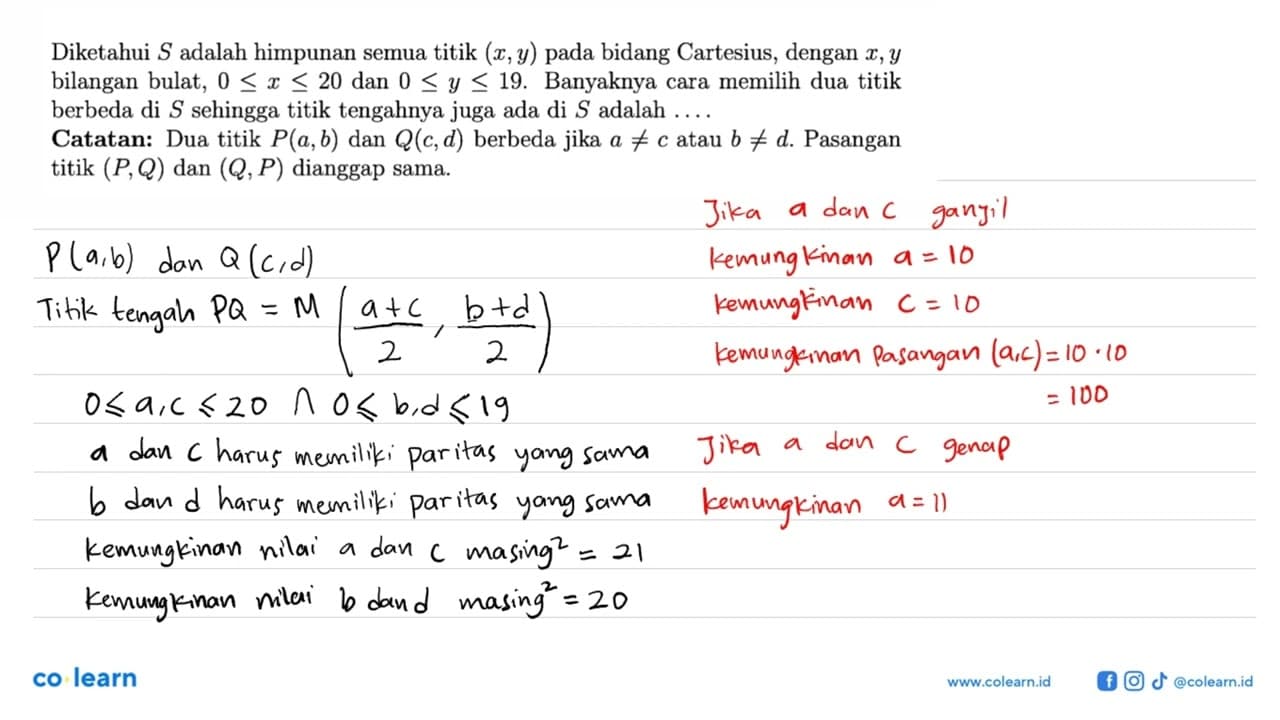 Diketahui S adalah himpunan semua titik (x, y) pada bidang Cartesius, dengan x, y
bilangan bulat, 0 ≤ x ≤ 20 dan 0 ≤ y ≤ 19. Banyaknya cara memilih dua titik
berbeda di S sehingga titik tengahnya juga ada di S adalah ....
Catatan: Dua titik P(a, b) dan Q(c, d) berbeda jika a ≠ c atau b ≠ d. Pasangan
titik (P, Q) dan (Q, P) dianggap sama.
P(a,b) dan Q(c,d)
Titik tengah PQ = M ((a+c)/2, (b+d)/2)
0 ≤ a,c ≤ 20 ∩ 0 ≤ b,d ≤ 19
a dan c harus memiliki paritas yang sama
b dan d harus memiliki paritas yang sama
kemungkinan nilai a dan c masing² = 21
kemungkinan nilai b dan d masing² = 20
Jika a dan c ganjil
kemungkinan a = 10
kemungkinan c = 10
kemungkinan pasangan (a,c) = 10 · 10
= 100
Jika a dan c genap
kemungkinan a = 11
co·learn
www.colearn.id
@colearn.id